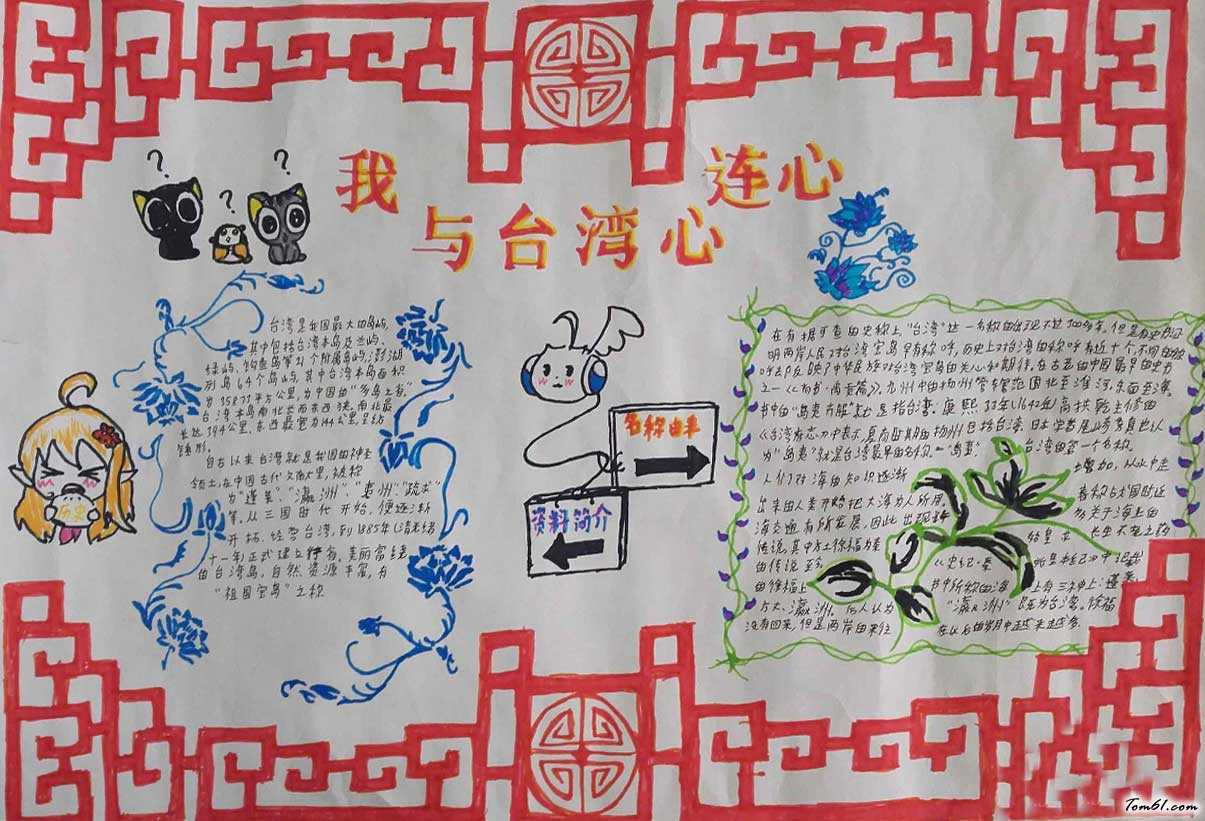 我与台湾心连心
? ? ?
台湾是我国最大的岛屿,
其中包括台湾本岛及兰屿、
绿屿、钓鱼岛等21个附属岛屿,澎湖
列岛64个岛屿,其中台湾本岛面积
为35873平方公里,为中国的“多岛之省”,
台湾本岛南北长而东西狭,南北最
长达394公里,东西最宽为144公里,呈纺
锤形。
自古以来台湾就是我国的神圣
领土,在中国古代文献里,被称
为“蓬莱”、“瀛洲”、“夷洲”、“琉求”
等。从三国时代开始,便逐渐
开拓、经营台湾,到1885年(清光绪
十一年)正式建立行省。美丽富饶
的台湾岛,自然资源丰富,有
“祖国宝岛”之称
历史
名称由来
资料简介
在有据可查的史称上“台湾”这一名称的出现不过200多年,但是有史料证
明两岸人民对台湾宝岛早有称呼,历史上对台湾的称呼有近十个,不同的称
呼都反映了中华民族对台湾宝岛的关心和期待。在古老的中国最早的史书
之一《尚书·禹贡篇》,九州中的扬州管辖范围北至淮河,东面至海。
书中的“岛夷卉服”其也是指台湾。康熙33年(1642年)高拱乾主修的
《台湾府志》中表示,夏商时期的扬州包括台湾。日本学者尾崎秀真也认
为“岛夷”就是台湾最早的名称。“岛夷” 台湾的第一个名称。
人们对海的知识逐渐 增加,从水中走
出来的人类开始把大海为人所用。 春称与我国附近
海交通有所发展,因此出现许 多关于海上的
传说,其中方士徐福为秦 始皇求 长生不老之药
的传说至今 《史记·秦 始皇本纪》中记载
的徐福上 书中所称的海 上有三神山:蓬莱、
方丈、瀛洲。后人认为 “瀛洲”即为台湾。徐福
没有回来,但是两岸的来往 在以后的岁月中越来越多。
Tom61.com